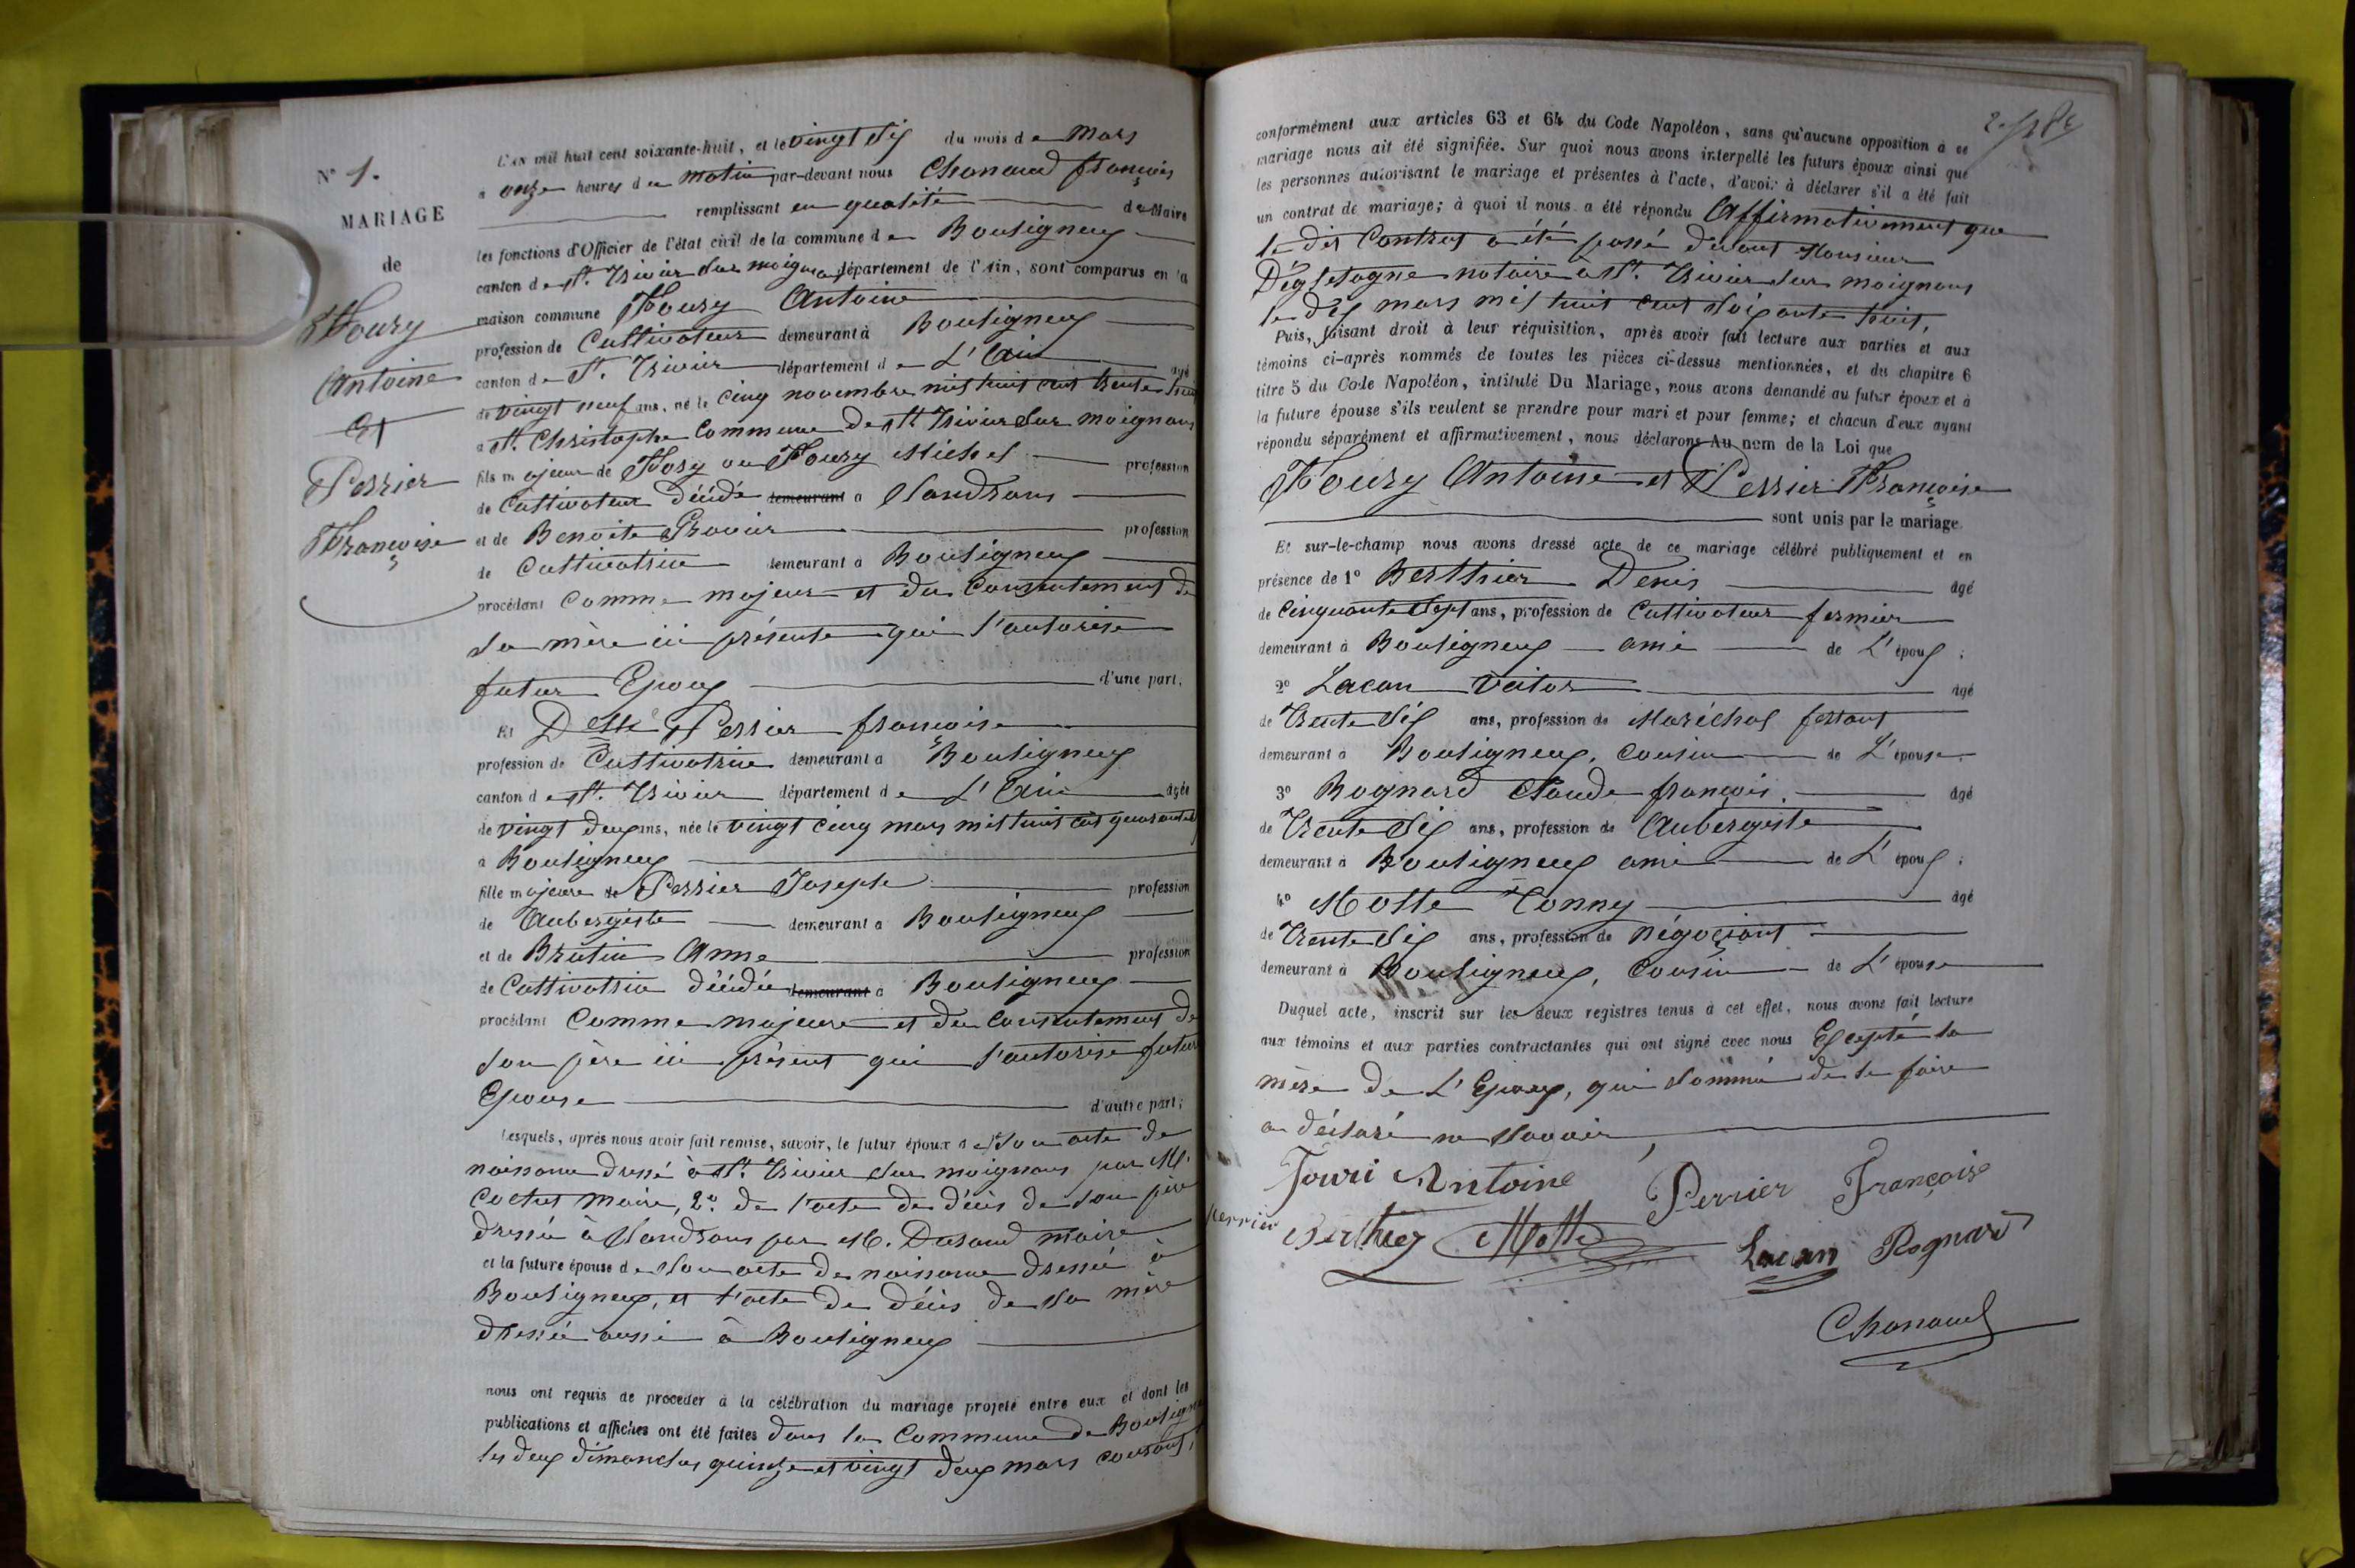 N° 1.
MARIAGE
de
Foury
Antoine
Et
Perrier
Françoise
L'AN mil huit cent soixante-huit, et le vingt six du mois de Mars
à onze heures du matin par-devant nous Chanaud françois
remplissant en qualité de Maire
les fonctions d'Officier de l'état civil de la commune de Bouligneux
canton de St. Trivier sur moignans département de l'Ain, sont comparus en la
maison commune Foury Antoine
profession de Cultivateur demeurant à Bouligneux
canton de St. Trivier département de L'Ain âgé
de vingt neuf ans, né le Cinq novembre mil huit cent trente huit
à St. Christophe Commune de St Trivier sur moignans
fils majeur de Fory ou Foury Michel profession
de Cultivateur décédé demeurant à Sandrans
et de Benoite profession
de Cultivatrice demeurant à Bouligneux
procédant Comme majeur et du Consentement de
sa mère ici présente qui l'autorise
futur Epoux d'une part,
Et Delle Perrier françoise
profession de Cultivatrice demeurant à Bouligneux
canton de St. Trivier département de L'Ain âgée
de vingt deux ans, née le vingt cinq mars mil huit cent quarante six
à Bouligneux
fille majeure de Perrier Joseph profession
de Aubergiste demeurant à Bouligneux
et de Brutin Anne profession
de Cultivatrice décédée demeurant à Bouligneux
procédant Comme majeure et du Consentement de
son père ici présent qui l'autorise future
Epouse d'autre part;
Lesquels, après nous avoir fait remise, savoir, le futur époux de son acte de
naissance dressé à St. Trivier sur moignans par M.
maire, 2° de l'acte de décès de son père
dressé à Sandrans par M. Durand maire
et la future épouse de son acte de naissance dressé à
Bouligneux, et l'acte de décès de sa mère
dressé aussi à Bouligneux
nous ont requis de procéder à la célébration du mariage projeté entre eux et dont les
publications et affiches ont été faites dans la Commune de Bouligneux
les deux dimanches quinze et vingt deux mars courant,
conformément aux articles 63 et 64 du Code Napoléon, sans qu'aucune opposition à ce
mariage nous ait été signifiée. Sur quoi nous avons interpellé les futurs époux ainsi que
les personnes autorisant le mariage et présentes à l'acte, d'avoir à déclarer s'il a été fait
un contrat de mariage; à quoi il nous a été répondu Affirmativement que
le dit Contrat a été passé devant Monsieur
notaire à St. Trivier sur moignans
le dix mars mil huit cent soixante huit,
Puis, faisant droit à leur réquisition, après avoir fait lecture aux parties et aux
témoins ci-après nommés de toutes les pièces ci-dessus mentionnées, et du chapitre 6
titre 5 du Code Napoléon, intitulé Du Mariage, nous avons demandé au futur époux et à
la future épouse s'ils veulent se prendre pour mari et pour femme; et chacun d'eux ayant
répondu séparément et affirmativement, nous déclarons Au nom de la Loi que
Foury Antoine et Perrier Françoise
sont unis par le mariage.
Et sur-le-champ nous avons dressé acte de ce mariage célébré publiquement et en
présence de 1° Berthier Denis âgé
de Cinquante sept ans, profession de Cultivateur fermier
demeurant à Bouligneux ami de L'époux;
2° Lacan Victor âgé
de Trente six ans, profession de Maréchal ferrant
demeurant à Bouligneux, Cousin de L'épouse
3° Rognard Claude françois âgé
de Trente six ans, profession de Aubergiste
demeurant à Bouligneux ami de L'époux;
4° Motte Tonny âgé
de Trente six ans, profession de négociant
demeurant à Bouligneux, Cousin de L'épouse
Duquel acte, inscrit sur les deux registres tenus à cet effet, nous avons fait lecture
aux témoins et aux parties contractantes qui ont signé avec nous Excepté la
mère de L'Epoux, qui sommé de le faire
a déclaré ne savoir
Fouri Antoine Perrier Françoise
perrier Berthier Motte Lacan Rognard
Chanaud